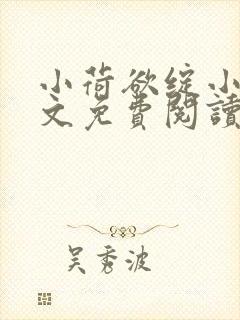 小荷欲绽小
文免費閱讀
吴秀波